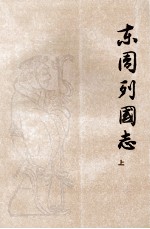 东周列國志
上